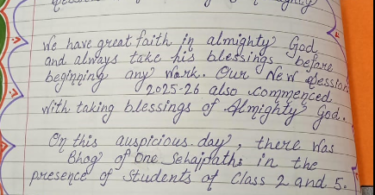 We have great faith in almighty God
and always take his blessings before
beginning any work. Our New Session
2025-26 also commenced
with taking blessings of Almighty God.
On this auspicious day, there was
Bhog of one Sehajpaths in the
presence of students of Class 2 and 5.